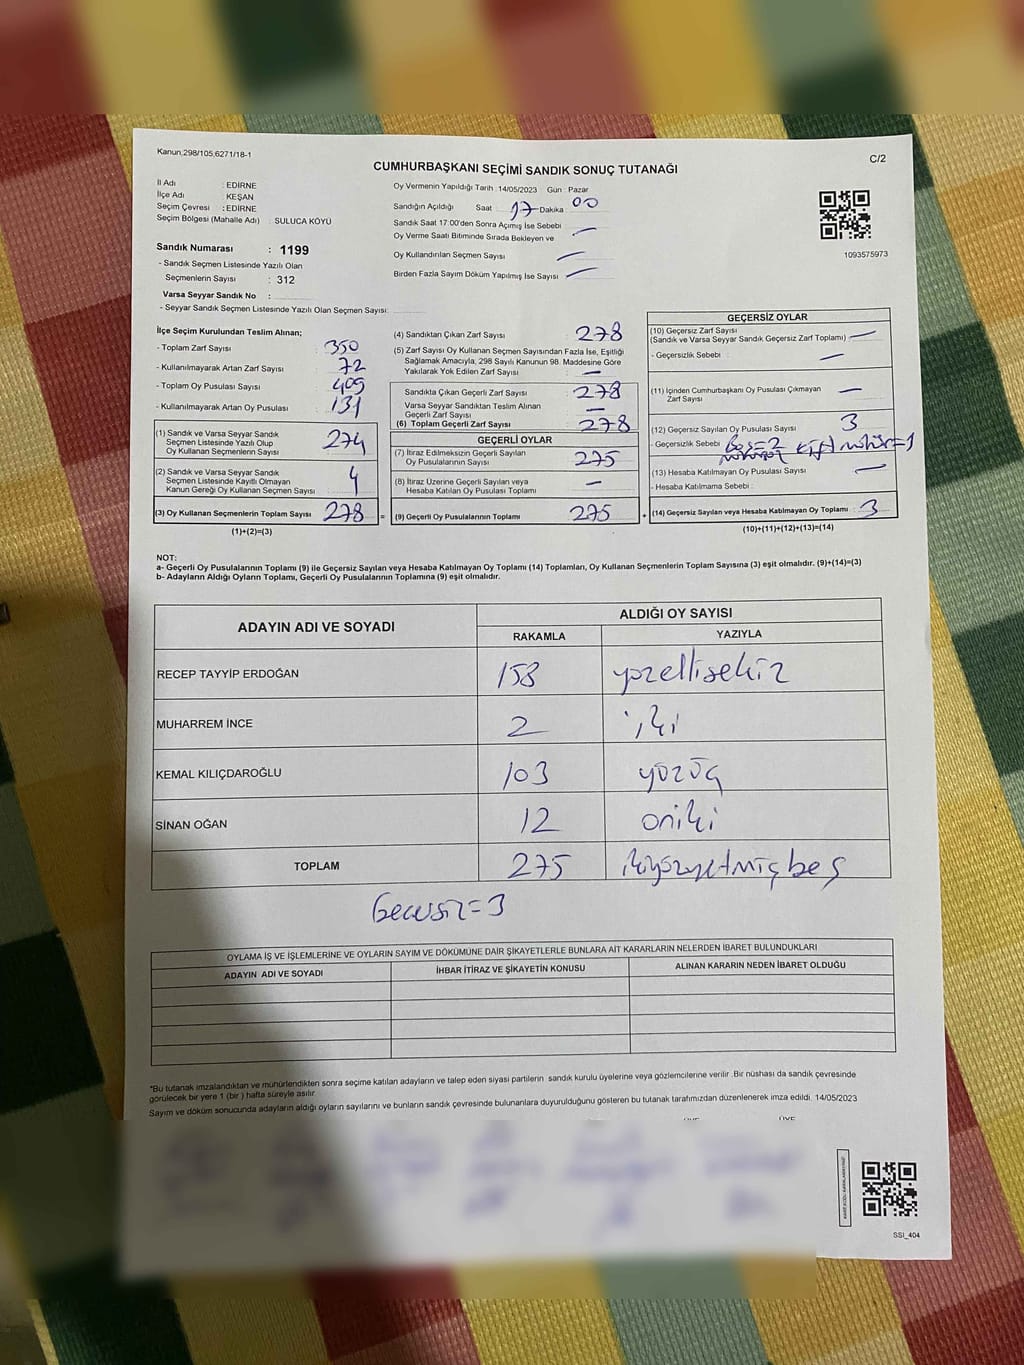 Kanun,298/105,6271/18-1
C/2
CUMHURBAŞKANI SEÇİMİ SANDIK SONUÇ TUTANAĞI
İl Adı : EDİRNE
İlçe Adı KEŞAN
Seçim Çevresi : EDİRNE
Seçim Bölgesi (Mahalle Adı) : SULUCA KÖYÜ
Sandık Numarası : 1199
- Sandık Seçmen Listesinde Yazılı Olan
Seçmenlerin Sayısı : 312
Varsa Seyyar Sandık No :
- Seyyar Sandık Seçmen Listesinde Yazılı Olan Seçmen Sayısı:
Oy Vermenin Yapıldığı Tarih :14/05/2023 Gün : Pazar
Sandığın Açıldığı Saat 17 Dakika 00
Sandık Saat 17:00'den Sonra Açımış İse Sebebi
Oy Verme Saati Bitiminde Sırada Bekleyen ve
Oy Kullandırılan Seçmen Sayısı
Birden Fazla Sayım Döküm Yapılmış İse Sayısı
1093575973
İlçe Seçim Kurulundan Teslim Alınan;
- Toplam Zarf Sayısı 350
- Kullanılmayarak Artan Zarf Sayısı 72
- Toplam Oy Pusulası Sayısı 409
- Kullanılmayarak Artan Oy Pusulası 131
(1) Sandık ve Varsa Seyyar Sandık
Seçmen Listesinde Yazılı Olup
Oy Kullanan Seçmenlerin Sayısı 274
(2) Sandık ve Varsa Seyyar Sandık
Seçmen Listesinde Kayıtlı Olmayan
Kanun Gereği Oy Kullanan Seçmen Sayısı 4
(3) Oy Kullanan Seçmenlerin Toplam Sayısı 278 =
(1)+(2)=(3)
(4) Sandıktan Çıkan Zarf Sayısı 278
(5) Zarf Sayısı Oy Kullanan Seçmen Sayısından Fazla İse, Eşitliği
Sağlamak Amacıyla, 298 Sayılı Kanunun 98. Maddesine Göre
Yakılarak Yok Edilen Zarf Sayısı —
Sandıkta Çıkan Geçerli Zarf Sayısı 278
Varsa Seyyar Sandıktan Teslim Alınan
Geçerli Zarf Sayısı —
(6) Toplam Geçerli Zarf Sayısı 278
GEÇERLİ OYLAR
(7) İtiraz Edilmeksizin Geçerli Sayılan
Oy Pusulalarının Sayısı 275
(8) İtiraz Üzerine Geçerli Sayılan veya
Hesaba Katılan Oy Pusulası Toplamı —
(9) Geçerli Oy Pusulalarının Toplamı 275 +
GEÇERSİZ OYLAR
(10) Geçersiz Zarf Sayısı
(Sandık ve Varsa Seyyar Sandık Geçersiz Zarf Toplamı) —
- Geçersizlik Sebebi : —
(11) İçinden Cumhurbaşkanı Oy Pusulası Çıkmayan
Zarf Sayısı —
(12) Geçersiz Sayılan Oy Pusulası Sayısı 3
- Geçersizlik Sebebi Boş=2 çift mühür=1
(13) Hesaba Katılmayan Oy Pusulası Sayısı —
- Hesaba Katılmama Sebebi :
(14) Geçersiz Sayılan veya Hesaba Katılmayan Oy Toplamı 3
(10)+(11)+(12)+(13)=(14)
NOT:
a- Geçerli Oy Pusulalarının Toplamı (9) ile Geçersiz Sayılan veya Hesaba Katılmayan Oy Toplamı (14) Toplamları, Oy Kullanan Seçmenlerin Toplam Sayısına (3) eşit olmalıdır. (9)+(14)=(3)
b- Adayların Aldığı Oyların Toplamı, Geçerli Oy Pusulalarının Toplamına (9) eşit olmalıdır.
ADAYIN ADI VE SOYADI
ALDIĞI OY SAYISI
RAKAMLA YAZIYLA
RECEP TAYYİP ERDOĞAN 158 yüzellisekiz
MUHARREM İNCE 2 iki
KEMAL KILIÇDAROĞLU 103 yüzüç
SİNAN OĞAN 12 oniki
TOPLAM 275 ikiyüzyetmişbeş
Geçersiz=3
OYLAMA İŞ VE İŞLEMLERİNE VE OYLARIN SAYIM VE DÖKÜMÜNE DAİR ŞİKAYETLERLE BUNLARA AİT KARARLARIN NELERDEN İBARET BULUNDUKLARI
ADAYIN ADI VE SOYADI İHBAR İTİRAZ VE ŞİKAYETİN KONUSU ALINAN KARARIN NEDEN İBARET OLDUĞU
*Bu tutanak imzalandıktan ve mühürlendikten sonra seçime katılan adayların ve talep eden siyasi partilerin sandık kurulu üyelerine veya gözlemcilerine verilir .Bir nüshası da sandık çevresinde
görülecek bir yere 1 (bir ) hafta süreyle asılır.
Sayım ve döküm sonucunda adayların aldığı oyların sayılarını ve bunların sandık çevresinde bulunanlara duyurulduğunu gösteren bu tutanak tarafımızdan düzenlenerek imza edildi. 14/05/2023
SSI_404